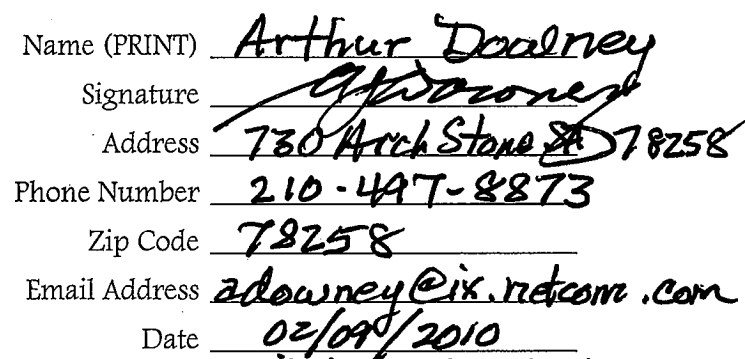 Name (PRINT) Arthur Downey
Signature
Address 730 Arch Stone SA 78258
Phone Number 210-497-8873
Zip Code 78258
Email Address adowney@ix.netcom.com
Date 02/09/2010